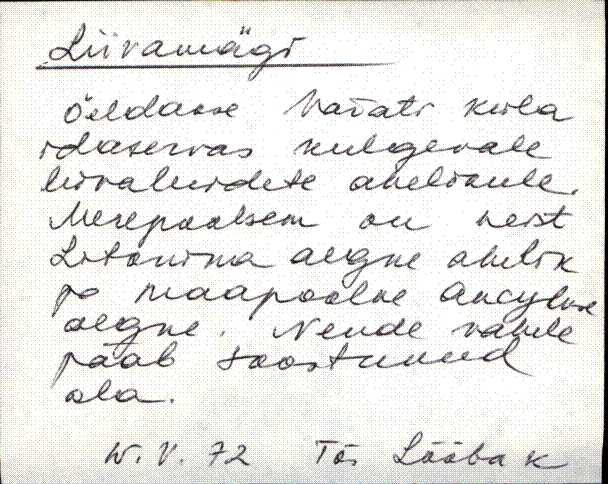 Liivamägi
Öeldasse Vaiati küla
idaservas kulgevale
liivaluidete ahelikule.
Merepoolsem on neist
Litoriina aegne ahelik
ja maapoolne Ancyluse
aegne. Nende vahele
jääb soostunud
ala.
W. V. 72 Tõs Lõõbak